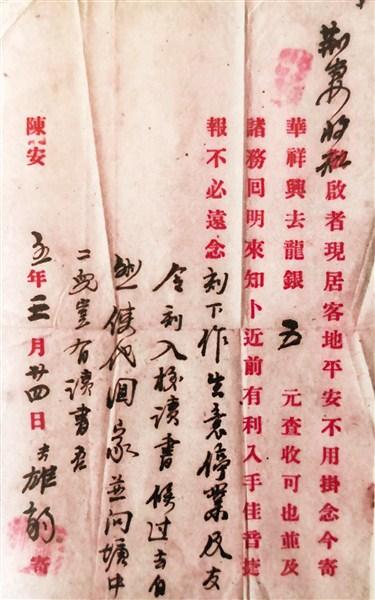 荆妻收知啟者現居客地平安不用掛念今寄
華祥興去龍銀五元查收可也並及
諸務回明來知卜近前有利入手佳音捷
報不必遠念刻下作生意停業及
令刻入校讀書候过去自
使代回家並问塘中
二兒豈有讀書否
陳安 五年三月廿四日夫雄韵寄